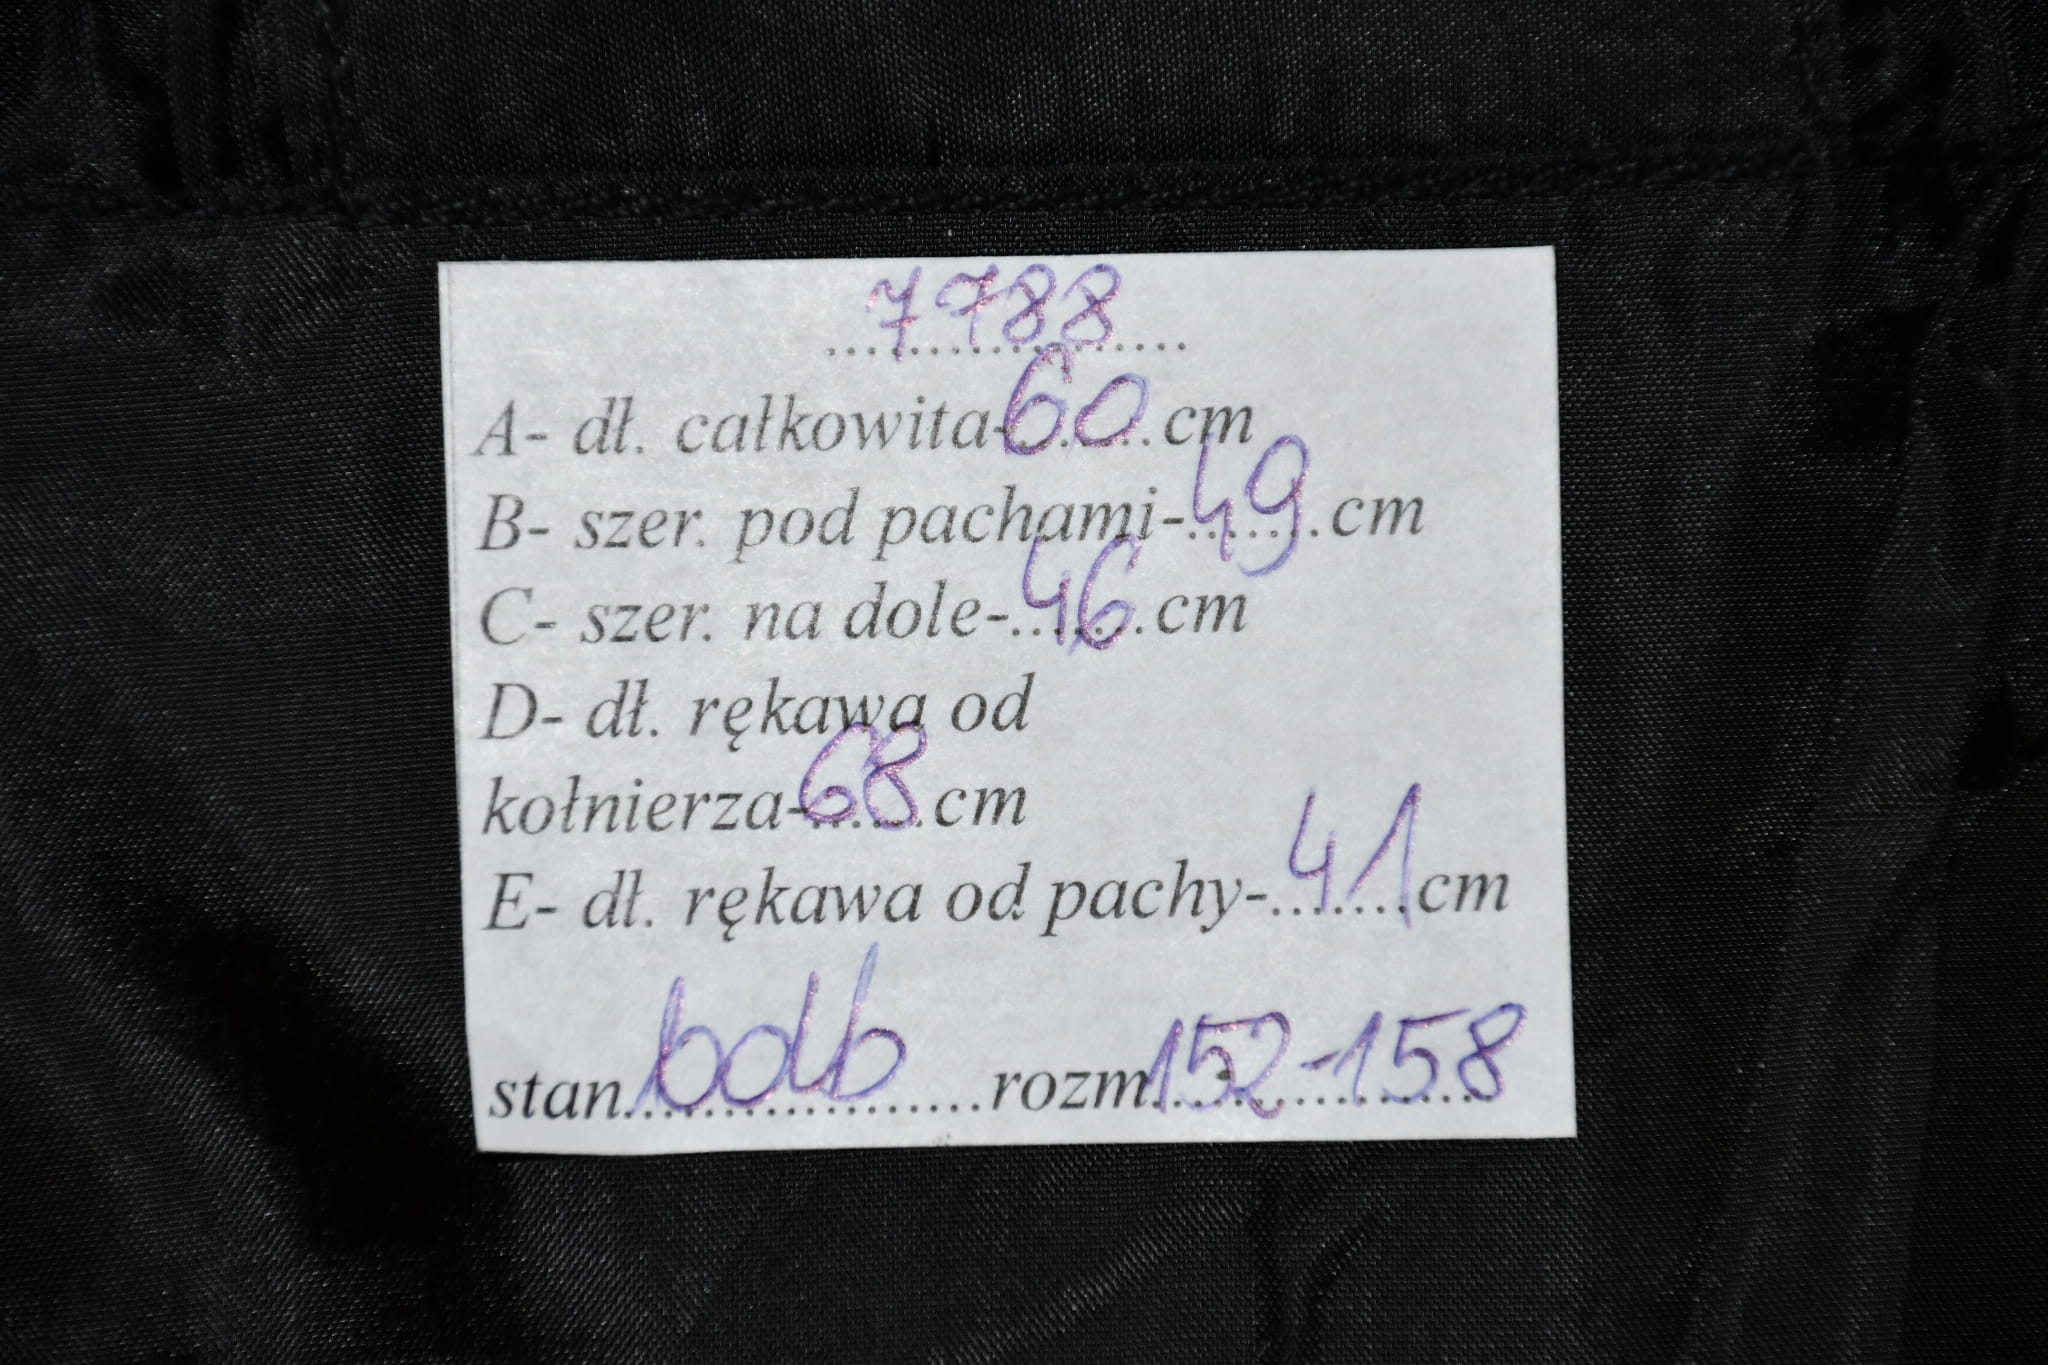 7788
A- dł. całkowita-60 cm
B- szer. pod pachami-49 cm
C- szer. na dole-46 cm
D- dł. rękawa od
kołnierza-68 cm
E- dł. rękawa od pachy-41 cm
stan bdb rozm 152-158